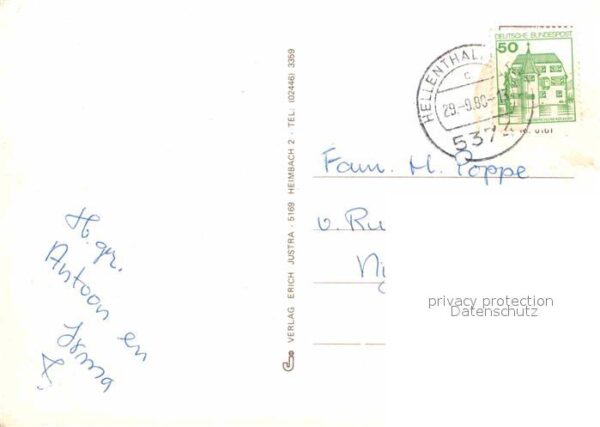 DEUTSCHE BUNDESPOST
50
HELLENTHAL
c
29.-9.80-13
5374
Fam. M. Poppe
v. Ru
Ni
H. gr.
Antoon en
Irma
VERLAG ERICH JUSTRA · 5169 HEIMBACH 2 · TEL. (02446) 3359
privacy protection
Datenschutz